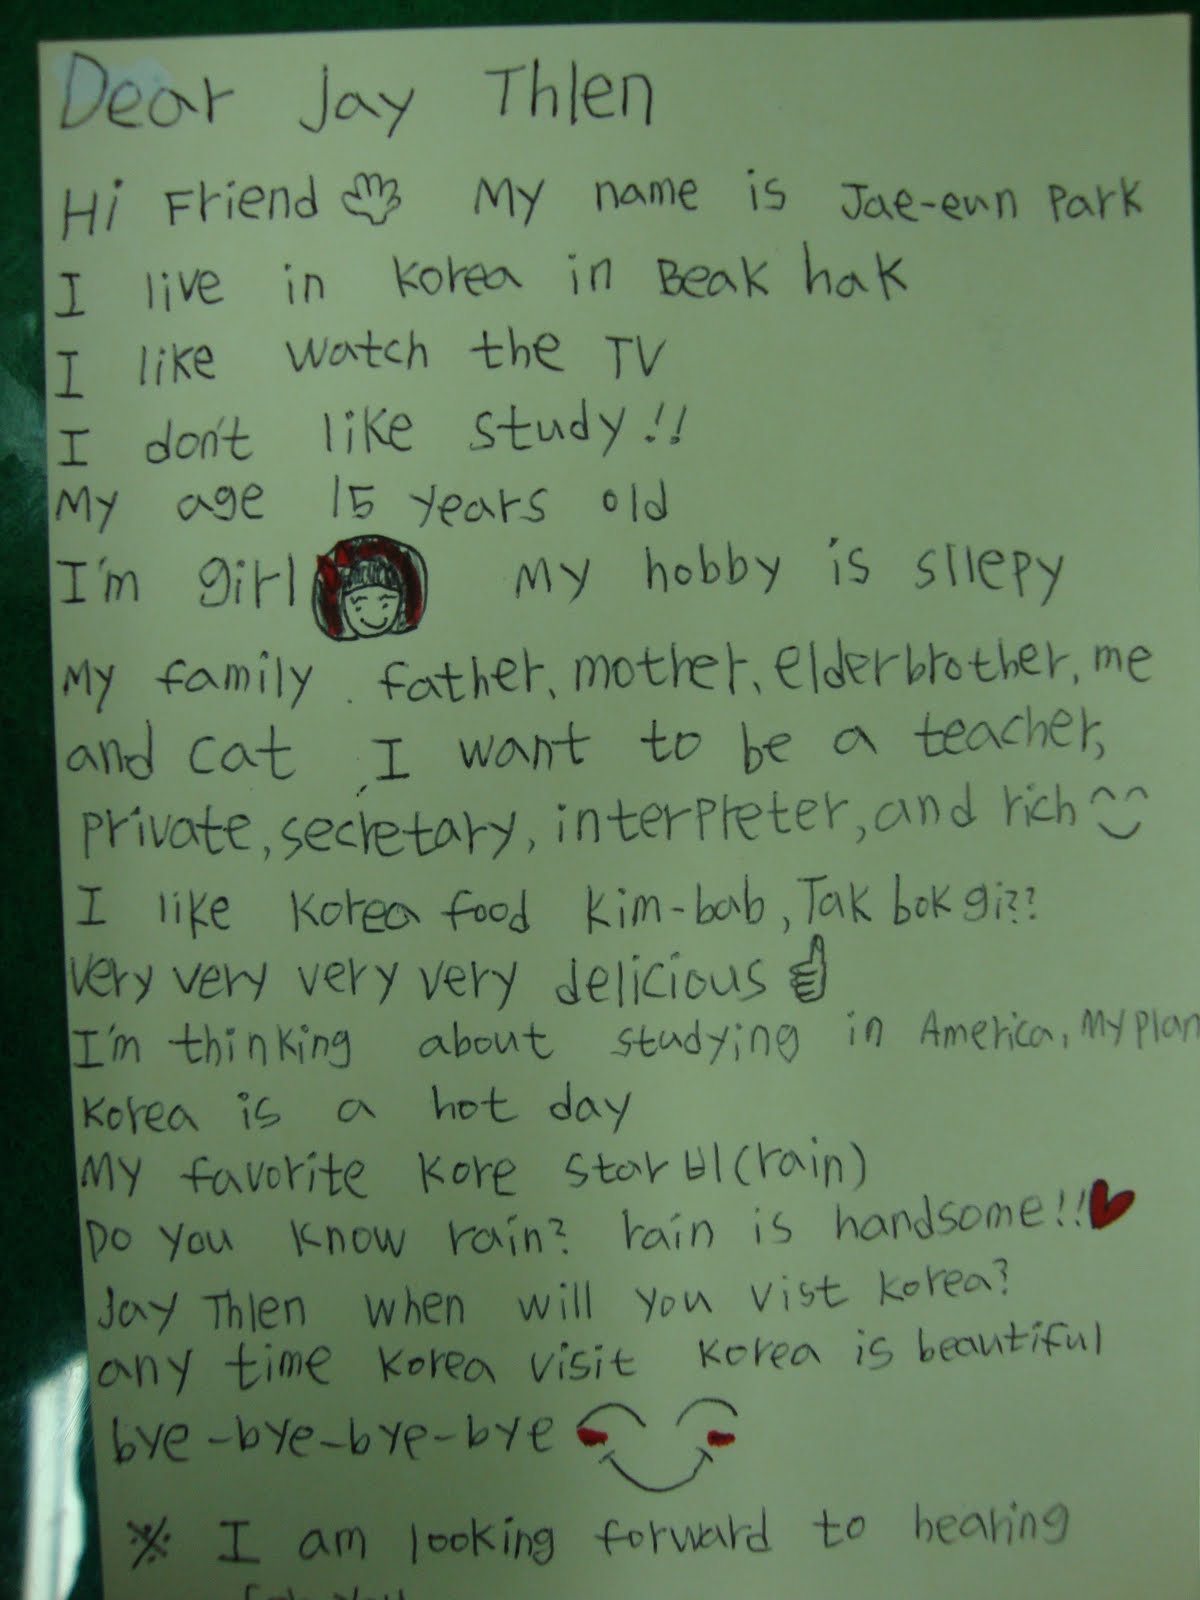 Dear Jay Thlen
Hi Friend My name is Jae-eun Park
I live in Korea in Beak hak
I like watch the TV
I don't like study!!
My age 15 years old
I'm girl My hobby is sllepy
My family. father, mother, elderbrother, me
and cat. I want to be a teacher,
private, secretary, interpreter, and rich ^^
I like Korea food kim-bab, Tak bok gi??
very very very very delicious
I'm thinking about studying in America, My plan
Korea is a hot day
My favorite Kore star 비(rain)
Do you know rain? rain is handsome!!
Jay Thlen when will you vist korea?
any time Korea visit Korea is beautiful
bye-bye-bye-bye
※ I am looking forward to hearing